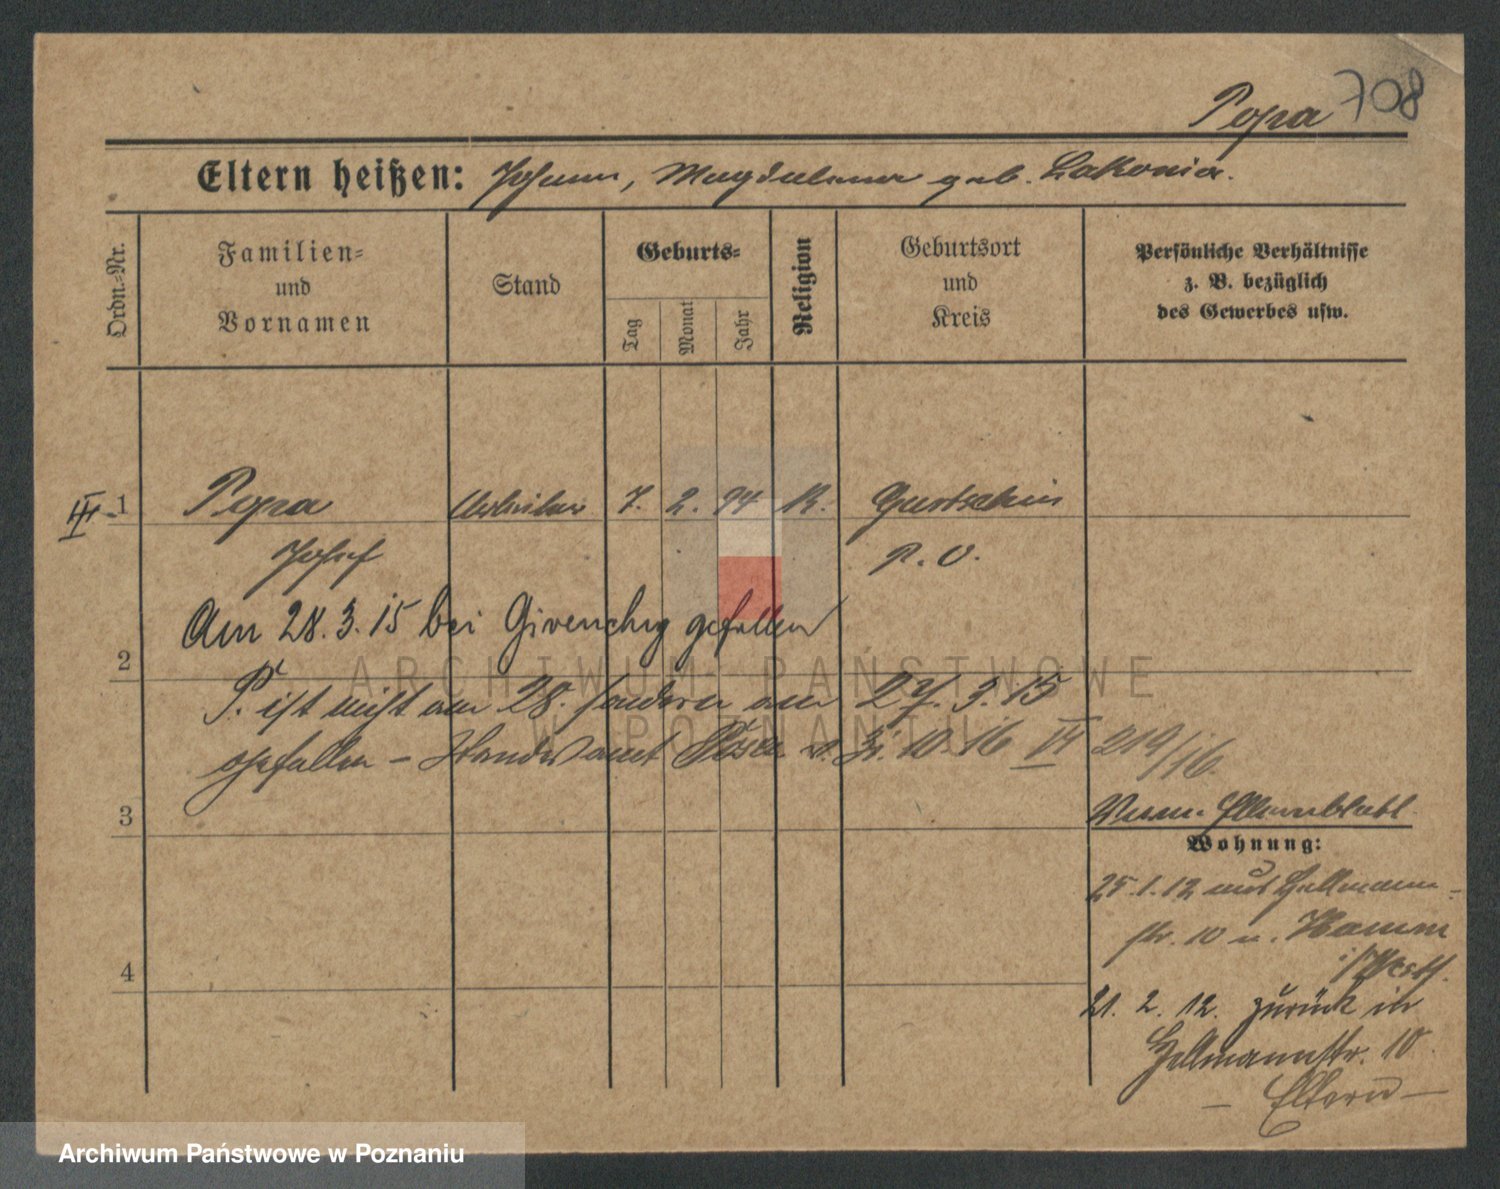 Popa 708
Eltern heißen: Johann, Magdalena geb. Lakonia.
Ordn.-Nr.
Familien-
und
Vornamen
Stand
Geburts-
Tag
Monat
Jahr
Religion
Geburtsort
und
Kreis
Persönliche Verhältnisse
z. B. bezüglich
des Gewerbes usw.
III. 1 Popa Arbeiter 7. 2. 94 K. Gurtschin
Josef P. O.
Am 28. 3. 15 bei Givenchy gefallen
2
P. ist nicht am 28. sondern am 27. 3. 15
gefallen – Standesamt Posen v. 10. 16 IV 219/16.
3
Elternblatt
Wohnung:
25. 1. 12 aus Hellmann-
str. 10 n. Hamm
i/Westf.
4
21. 2. 12. zurück in
Hellmannstr. 10.
– Eltern –
ARCHIWUM PAŃSTWOWE
W POZNANIU
Archiwum Państwowe w Poznaniu